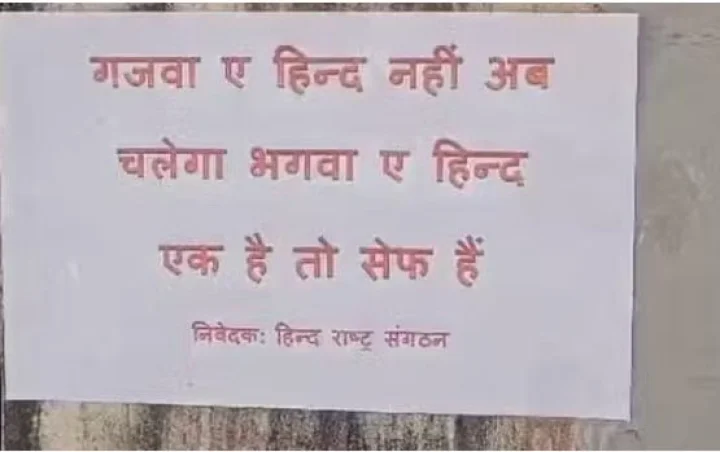 गजवा ए हिन्द नहीं अब
चलेगा भगवा ए हिन्द
एक है तो सेफ हैं
निवेदक: हिन्द राष्ट्र संगठन